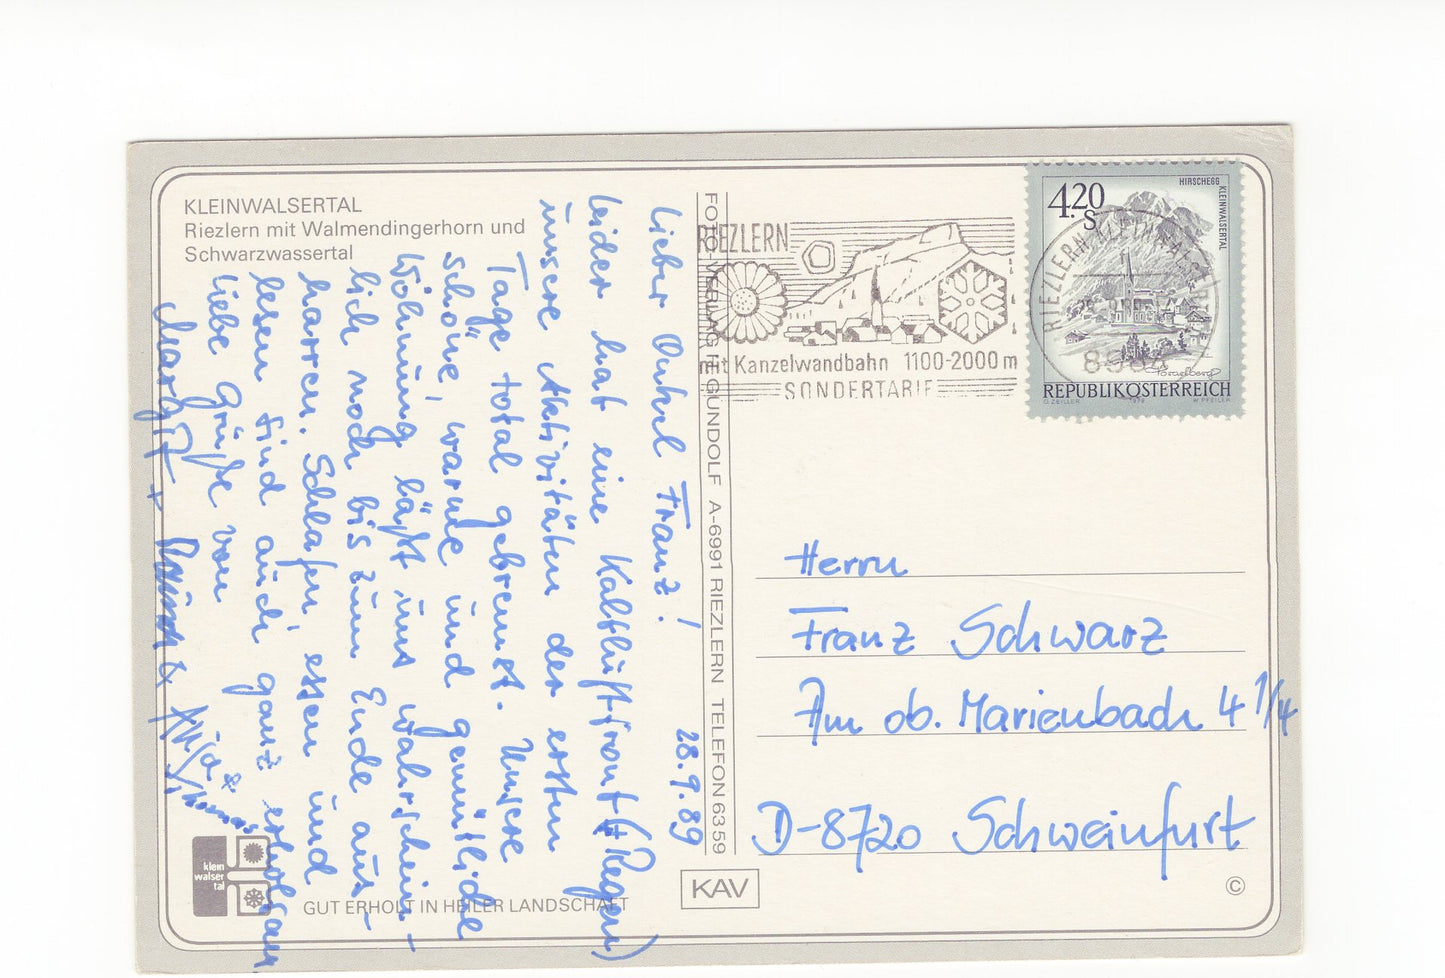 KLEINWALSERTAL
Riezlern mit Walmendingerhorn und
Schwarzwassertal
28.9.89
Lieber Onkel Franz!
Leider hat eine Kaltluftfront (+Regen)
unsere Aktivitäten der ersten
Tage total gebremst. Unsere
schöne, warme und gemütliche
Wohnung läßt uns wahrschein-
lich noch bis zum Ende aus-
harren. Schlafen, essen und
lesen sind auch ganz erholsam
Liebe Grüße von
Margit +
FOTO-VERLAG HEGUNDOLF A-6991 RIEZLERN TELEFON 6359
RIEZLERN
mit Kanzelwandbahn 1100-2000 m
SONDERTARIF
4.20
S
HIRSCHEGG
KLEINWALSERTAL
Vorarlberg
REPUBLIK ÖSTERREICH
O. ZEILLER 1979 W. PFEILER
RIEZLERN, KLEINWALSERTAL
Herrn
Franz Schwarz
Am ob. Marienbach 4 1/4
D-8720 Schweinfurt
klein
walser
tal
GUT ERHOLT IN HEILER LANDSCHAFT
KAV
©